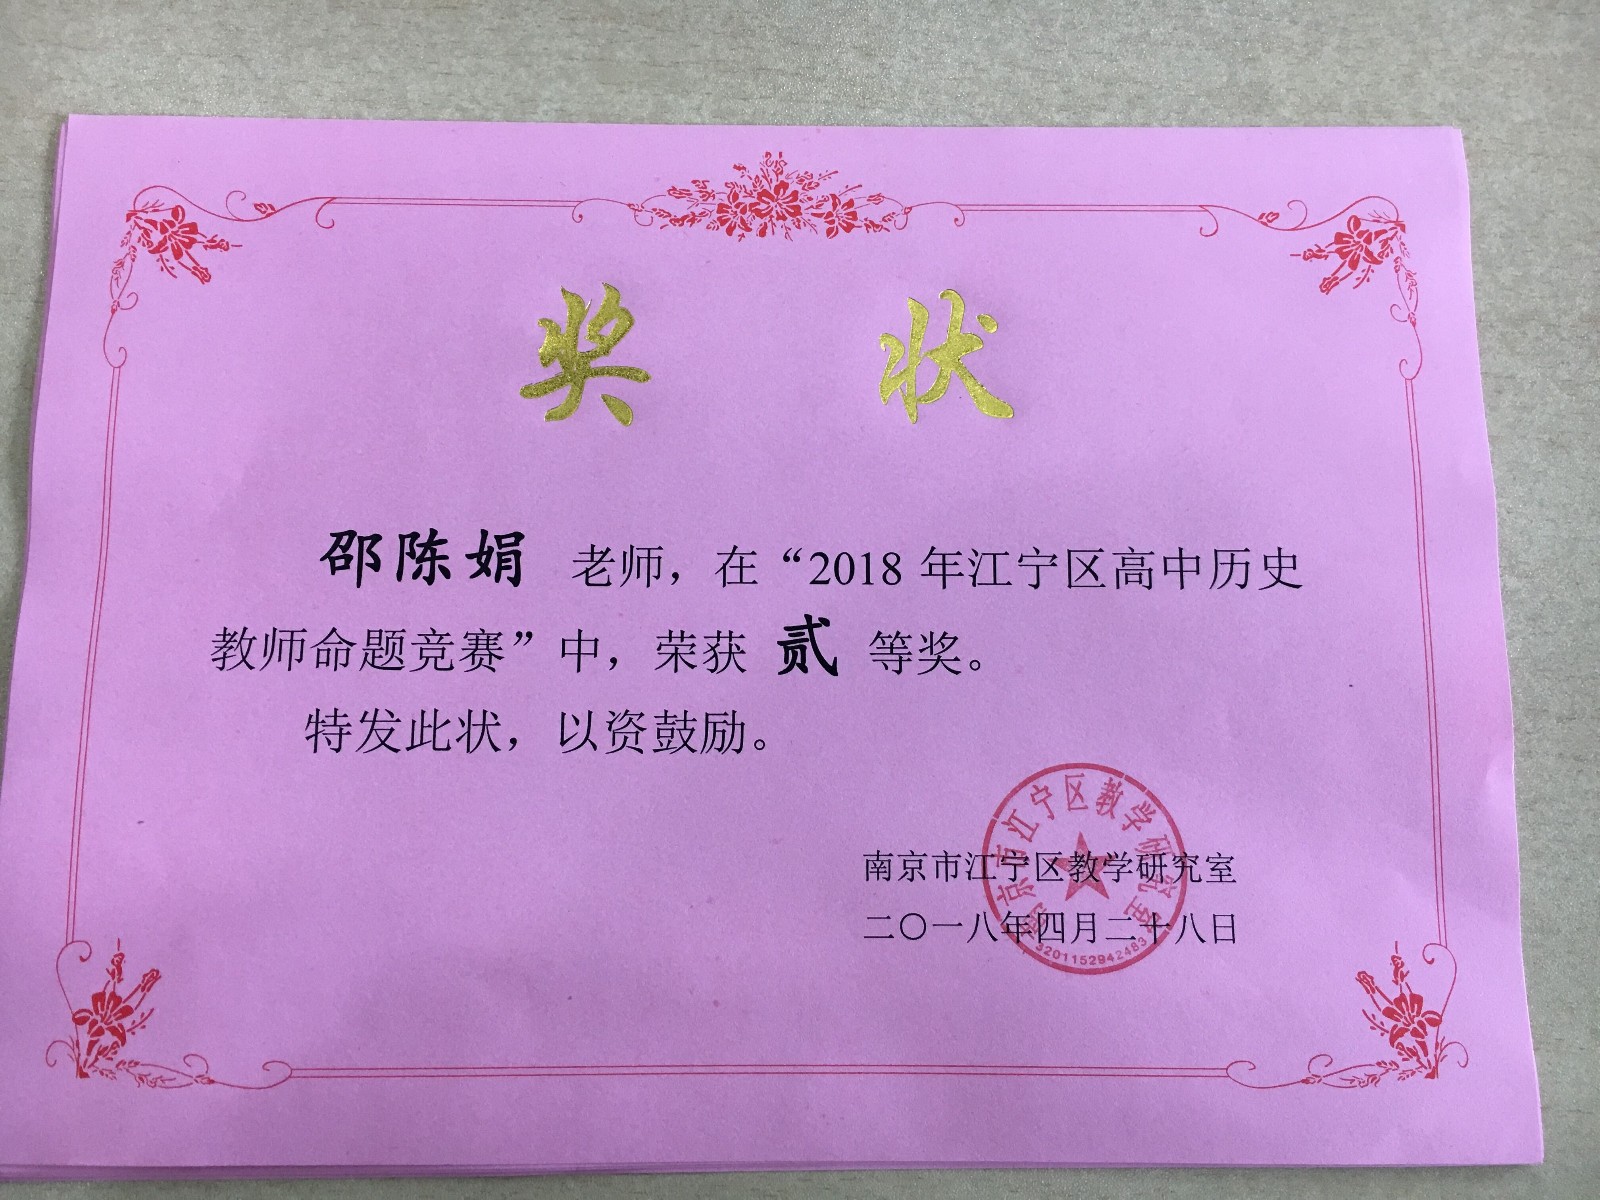 奖状
邵陈娟 老师，在“2018 年江宁区高中历史
教师命题竞赛”中，荣获 贰 等奖。
特发此状，以资鼓励。
南京市江宁区教学研究室
二〇一八年四月二十八日
南京市江宁区教学研究室
3201152942483